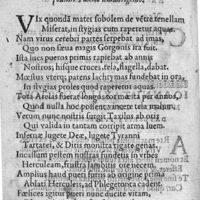 VIx quondã mater sobolem de vētre tenellam
Miserat, in stygias cum raperetur aquas.
Nam virus cerebri partes serpebat ad imas,
Quo non sæua magis Gorgonis ira fuit.
Ista lues pueros primis rapiebat ab annis
Nostros, hisque cruces, tela, flagella, dabat.
Mœstus vterq; parens lachrymas fundebat in ora,
In stygias proles quod raperetur aquas?
Tota
Quod nulla hoc posset vincere tela malum.
Verum nunc nostris surgit Taylus ab oris
Qui valida tantum corripit arma luem.
Infernæ lugete Deæ, lugete Tyranni
Tartarei, & Ditis monstra tigate genas.
Incassum pestem nostras fundetis in orbe
Herculeam, frustra iam furit ore canem.
Amplius haud pueri furiis ab origine prima
Ablati Herculeis, ad Phlegetonta cadent.
Fœlices igitur pueri nunc ducite vitam,